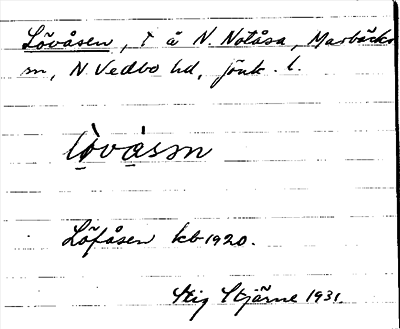 Lövåsen, t å N. Notåsa, Marbäcks
sn, N Vedbo hd, Jönk. l.
lövåsm
Löfåsen kb 1920.
Stig Stjärne 1931.